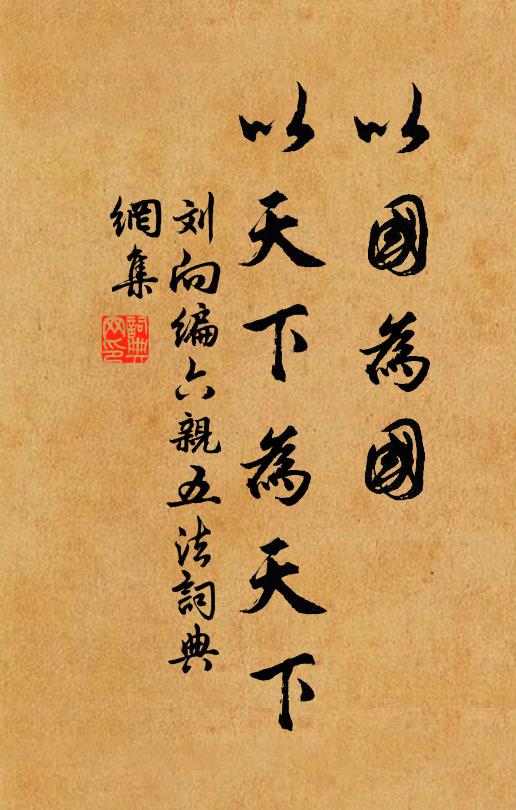 以國為國
以天下為天下
刘向编六親五法詞典
網集
詞典網印